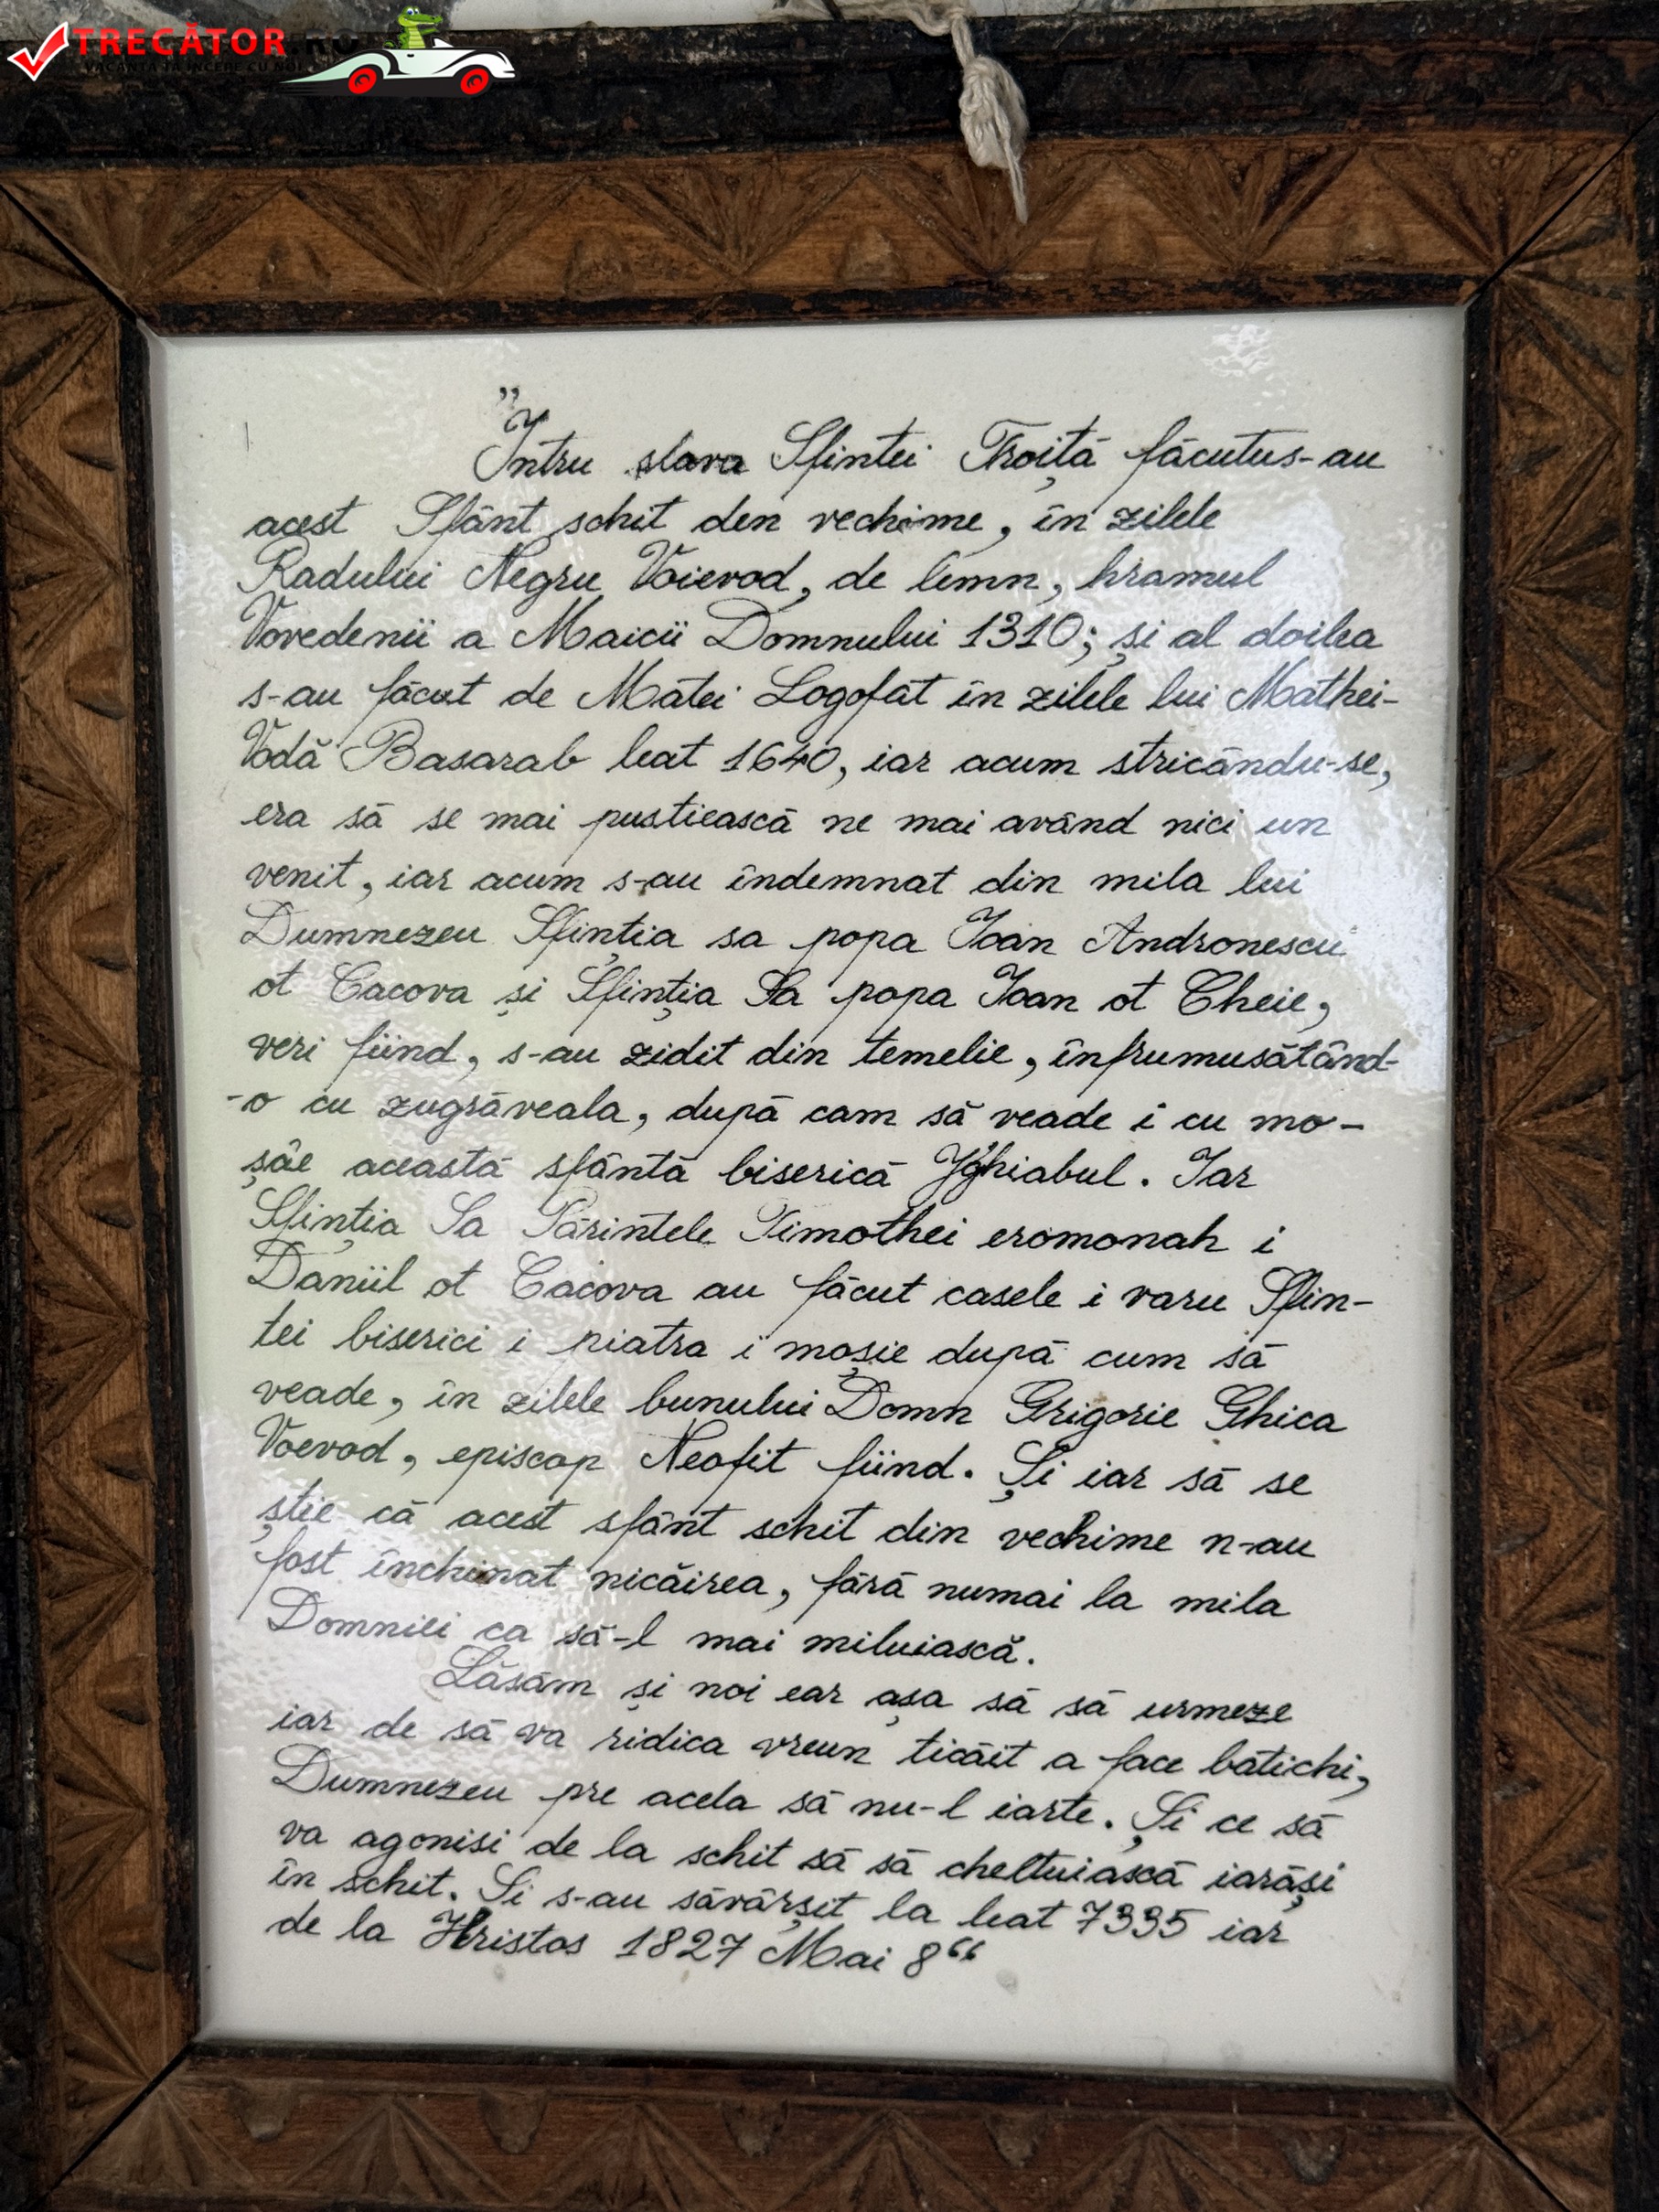 TRECĂTOR.RO
VACANȚA TA ÎNCEPE CU NOI
„Întru slava Sfintei Troiță făcutus-au
acest Sfânt schit den vechime, în zilele
Radului Negru Voievod, de lemn, hramul
Vovedenii a Maicii Domnului 1310; și al doilea
s-au făcut de Matei Logofăt în zilele lui Mathei-
Vodă Basarab leat 1640, iar acum stricându-se,
era să se mai pustiească ne mai având nici un
venit, iar acum s-au îndemnat din mila lui
Dumnezeu Sfinția sa popa Ioan Andronescu
ot Cacova și Sfinția Sa popa Ioan ot Cheie,
veri fiind, s-au zidit din temelie, înfrumusătând-
-o cu zugrăveala, după cam să veade i cu mo-
șâe această sfântă biserică Ighiabul. Iar
Sfinția Sa Părintele Timothei eromonah i
Daniil ot Cacova au făcut casele i varu Sfin-
tei biserici i piatra i moșie după cum să
veade, în zilele bunului Domn Grigorie Ghica
Voevod, episcop Neofit fiind. Și iar să se
știe că acest sfânt schit din vechime n-au
fost închinat nicăirea, fără numai la mila
Domniei ca să-l mai miluiască.
Lăsăm și noi ear așa să să urmeze
iar de să va ridica vreun ticăit a face bătichi,
Dumnezeu pre acela să nu-l iarte. Și ce să
va agonisi de la schit să să cheltuiască iarăși
în schit. Si s-au săvârșit la leat 7335 iar
de la Hristos 1827 Mai 8“